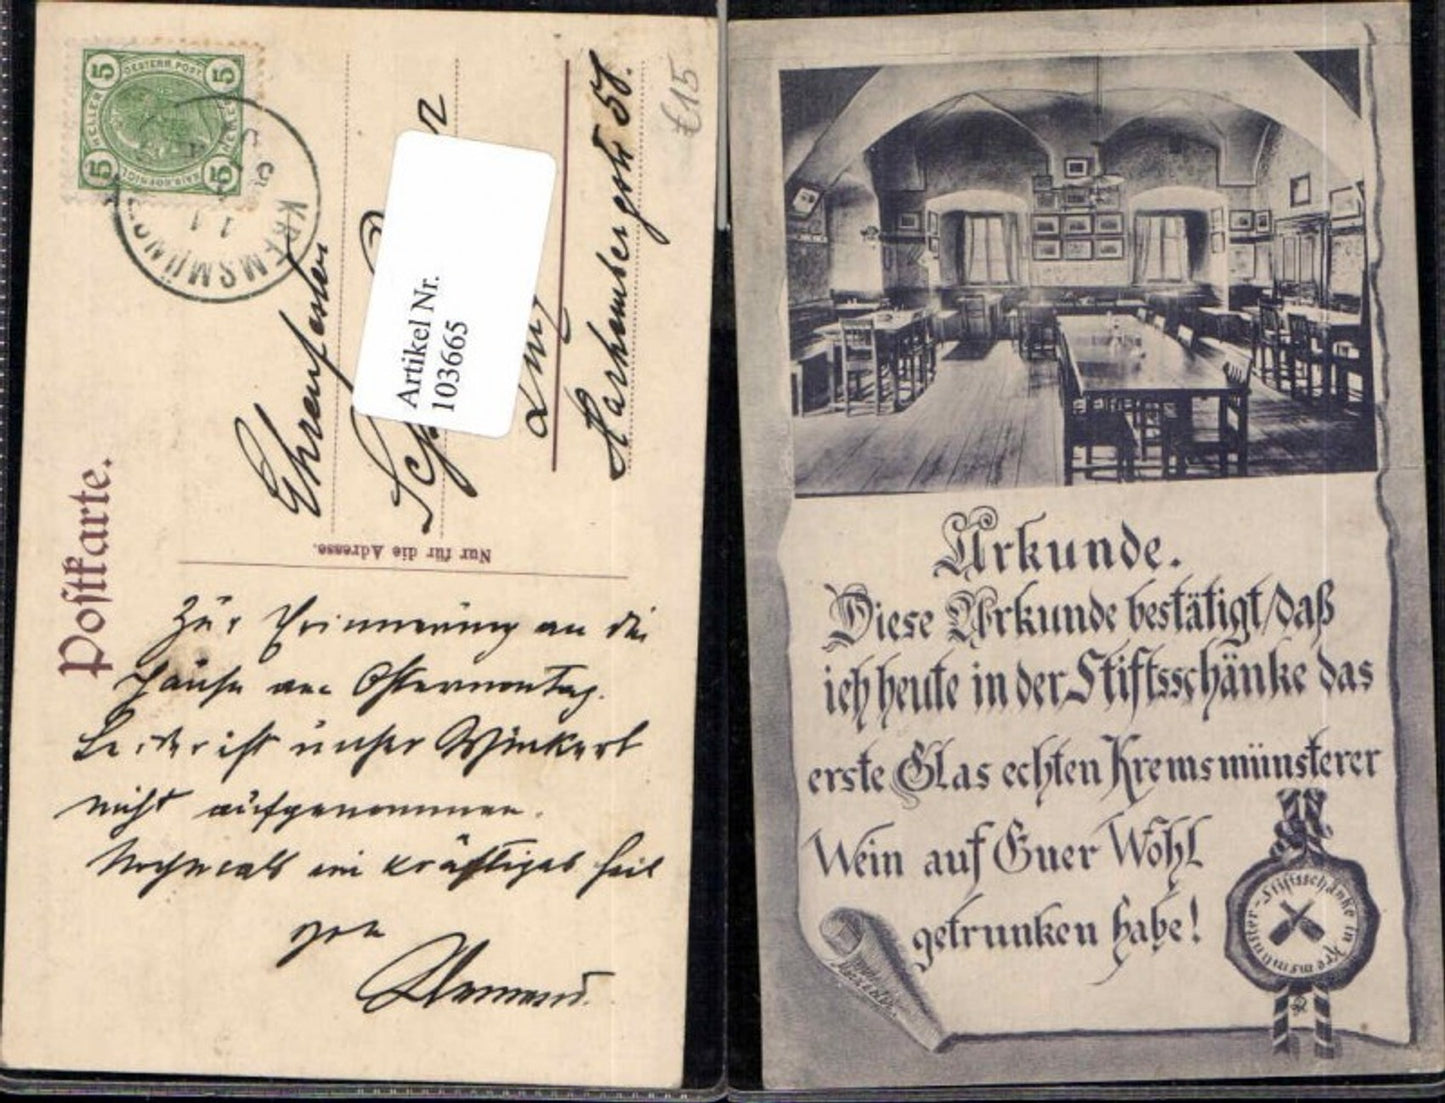 5 OESTERR. POST 5
HELLER HELLER
5 KAIS. KOENIGL. 5
KREMSMÜNS
Postkarte.
Nur für die Adresse.
Artikel Nr.
103665
£15
Zur Erinnerung an die
am Ostermontag.
Leider ist unser Winkerl
nicht aufgenommen.
Nochmals ein kräftiges Heil
von
Urkunde.
Diese Urkunde bestätigt, daß
ich heute in der Stiftsschänke das
erste Glas echten Kremsmünsterer
Wein auf Euer Wohl
getrunken habe!
Stiftsschänke in Kremsmünster